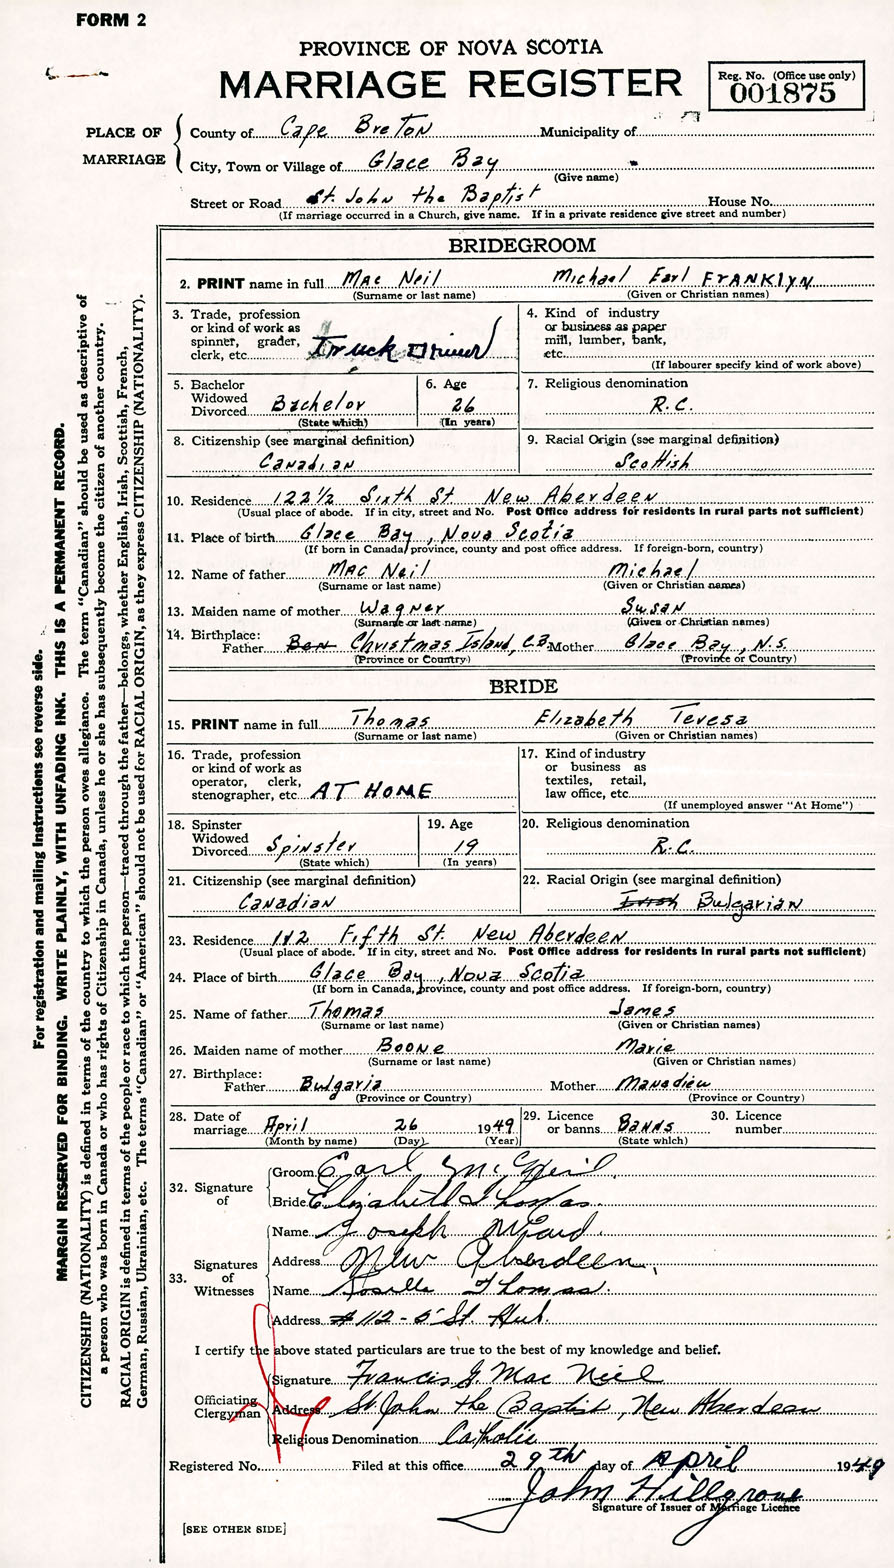 FORM 2
PROVINCE OF NOVA SCOTIA
MARRIAGE REGISTER
Reg. No. (Office use only)
001875
PLACE OF MARRIAGE
County of Cape Breton Municipality of
City, Town or Village of Glace Bay
(Give name)
Street or Road St. John the Baptist House No.
(If marriage occurred in a Church, give name. If in a private residence give street and number)
BRIDEGROOM
2. PRINT name in full Mac Neil Michael Earl FRANKLYN
(Surname or last name) (Given or Christian names)
3. Trade, profession or kind of work as spinner, grader, clerk, etc. Truck Driver
4. Kind of industry or business as paper mill, lumber, bank, etc.
(If labourer specify kind of work above)
5. Bachelor Widowed Divorced Bachelor
(State which)
6. Age 26
(In years)
7. Religious denomination
R.C.
8. Citizenship (see marginal definition)
Canadian
9. Racial Origin (see marginal definition)
Scottish
10. Residence 122½ Sixth St. New Aberdeen
(Usual place of abode. If in city, street and No. Post Office address for residents in rural parts not sufficient)
11. Place of birth Glace Bay, Nova Scotia
(If born in Canada, province, county and post office address. If foreign-born, country)
12. Name of father Mac Neil Michael
(Surname or last name) (Given or Christian names)
13. Maiden name of mother Wagner Susan
(Surname or last name) (Given or Christian names)
14. Birthplace:
Father Ben Christmas Island, C.B. Mother Glace Bay, N.S.
(Province or Country) (Province or Country)
BRIDE
15. PRINT name in full Thomas Elizabeth Teresa
(Surname or last name) (Given or Christian names)
16. Trade, profession or kind of work as operator, clerk, stenographer, etc. AT HOME
17. Kind of industry or business as textiles, retail, law office, etc.
(If unemployed answer "At Home")
18. Spinster Widowed Divorced Spinster
(State which)
19. Age 19
(In years)
20. Religious denomination
R.C.
21. Citizenship (see marginal definition)
Canadian
22. Racial Origin (see marginal definition)
Irish Bulgarian
23. Residence 112 Fifth St. New Aberdeen
(Usual place of abode. If in city, street and No. Post Office address for residents in rural parts not sufficient)
24. Place of birth Glace Bay, Nova Scotia
(If born in Canada, province, county and post office address. If foreign-born, country)
25. Name of father Thomas James
(Surname or last name) (Given or Christian names)
26. Maiden name of mother Boone Marie
(Surname or last name) (Given or Christian names)
27. Birthplace:
Father Bulgaria Mother Manadieu
(Province or Country) (Province or Country)
28. Date of marriage April 26 1949
(Month by name) (Day) (Year)
29. Licence or banns Banns
(State which)
30. Licence number
32. Signature of
Groom Earl McNeil
Bride Elizabeth Thomas
33. Signatures of Witnesses
Name Joseph
Address New Aberdeen
Name Thomas
Address # 112 - 5 St. Hub.
I certify the above stated particulars are true to the best of my knowledge and belief.
Officiating Clergyman
Signature Francis G. Mac Neil
Address St John the Baptist, New Aberdeen
Religious Denomination Catholic
Registered No. Filed at this office 29th day of April 1949
John Hillgrove
Signature of Issuer of Marriage Licence
[SEE OTHER SIDE]
For registration and mailing instructions see reverse side.
MARGIN RESERVED FOR BINDING. WRITE PLAINLY, WITH UNFADING INK. THIS IS A PERMANENT RECORD.
CITIZENSHIP (NATIONALITY) is defined in terms of the country to which the person owes allegiance. The term "Canadian" should be used as descriptive of
a person who was born in Canada or who has rights of Citizenship in Canada, unless he or she has subsequently become the citizen of another country.
RACIAL ORIGIN is defined in terms of the people or race to which the person—traced through the father—belongs, whether English, Irish, Scottish, French,
German, Russian, Ukrainian, etc. The terms "Canadian" or "American" should not be used for RACIAL ORIGIN, as they express CITIZENSHIP (NATIONALITY).